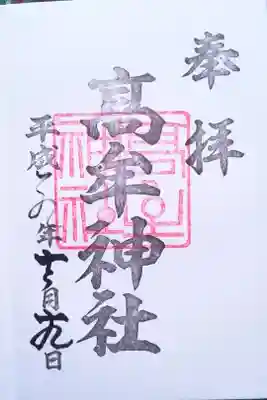 奉拝
高牟神社
平成二の年十二月十九日